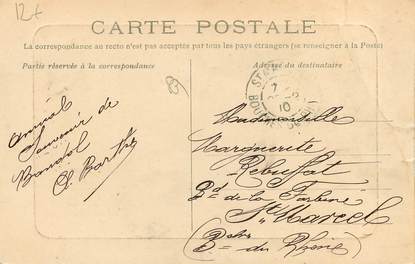 12+
CARTE POSTALE
La correspondance au recto n'est pas acceptée par tous les pays étrangers (se renseigner à la Poste)
Partie réservée à la correspondance
Adresse du destinataire
Amical
Souvenir de
Bandol
Barthe
Mademoiselle
Marguerite
Rebuffat
Bd de la Turbine
St Marcel
(Bches du Rhône)